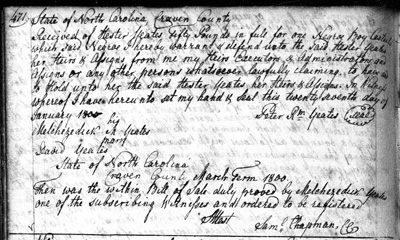 471
State of North Carolina, Craven County
Received of Hester Yeates Fifty Pounds in full for one Negroe Boy
which said Negroe I hereby warrant & defend unto the said Hester Yeates
her Heirs & Assigns, from me my Heirs Executors & Administrators and
Assigns or any other persons whatsoever lawfully claiming, to have and
to Hold unto her the said Hester Yeates, her Heirs & Assigns. In Witness
whereof I have hereunto set my hand & Seal this twenty seventh day of
January 1800
Peter Rm Yeates (Seal)
his
Melcherzedick Yeates
mark
David Yeates
State of North Carolina
Craven County March Term 1800.
Then was the within Bill of Sale duly proved by Melcherzedick Yeates
one of the subscribing Witnesses and ordered to be registered
Attest
Saml. Chapman, CC